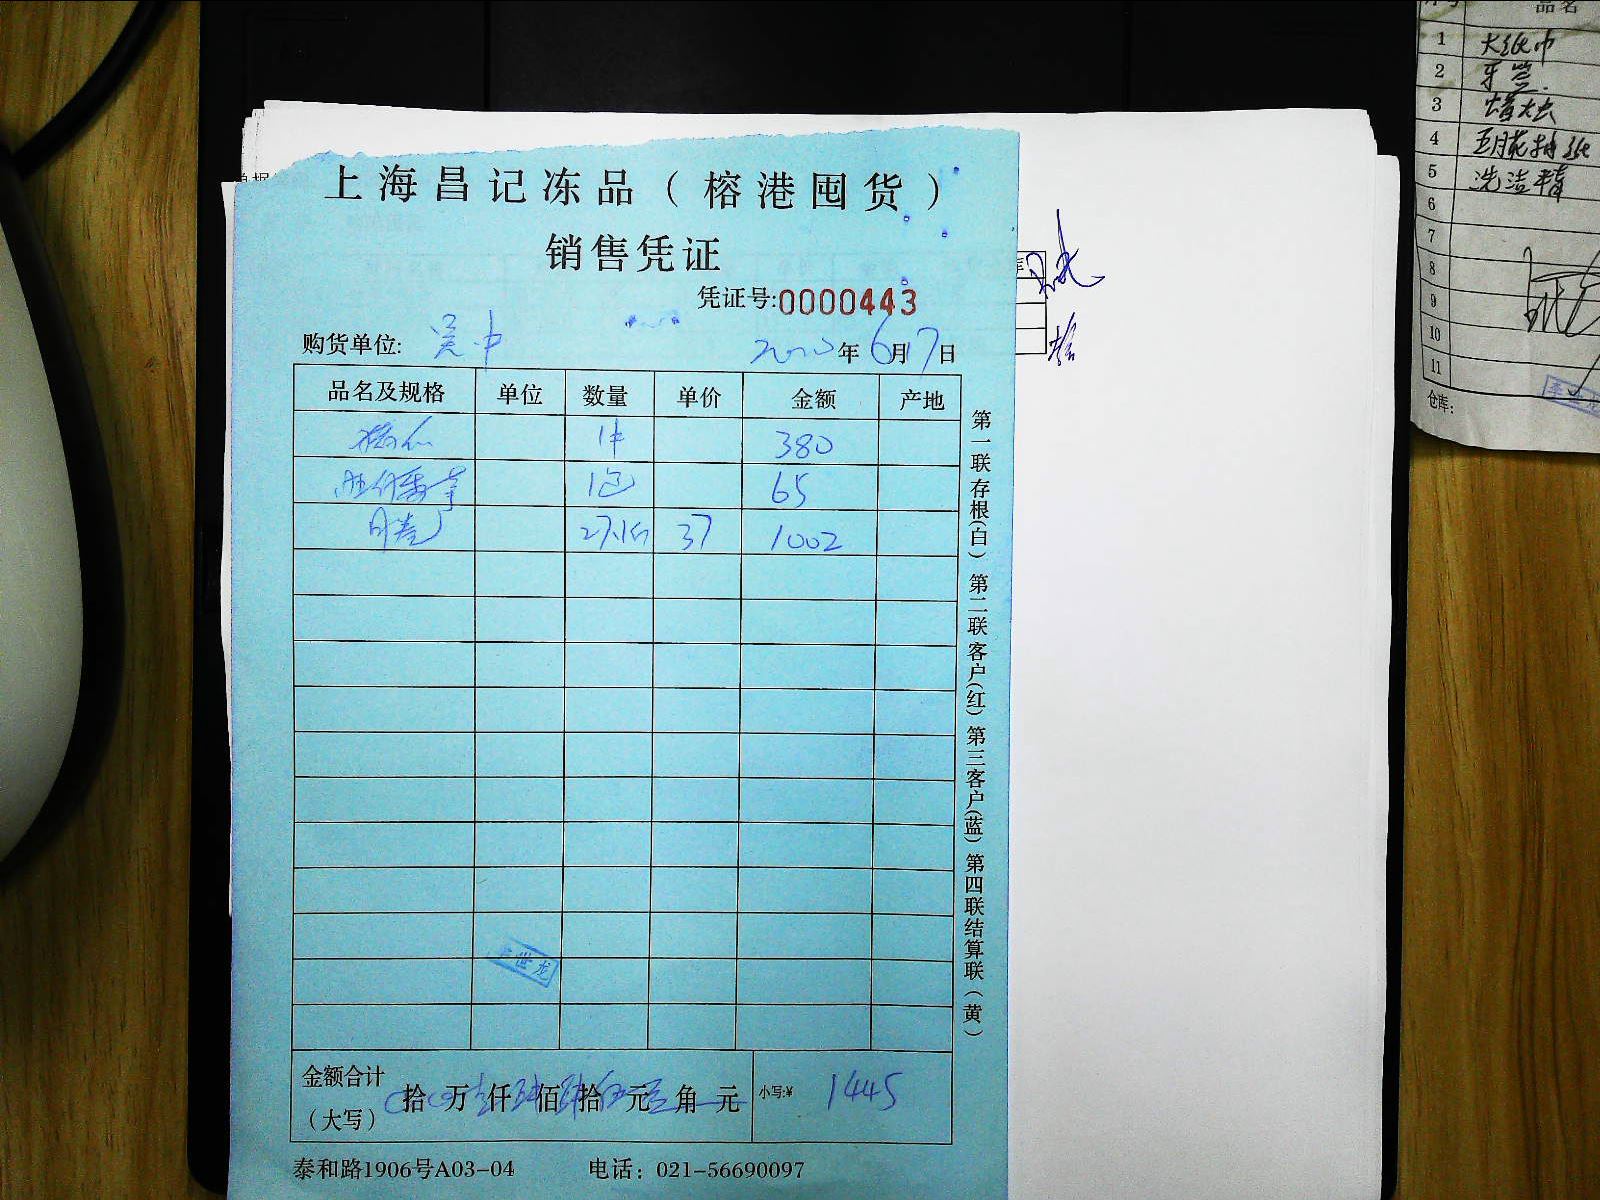 上海昌记冻品（榕港囤货）
销售凭证
凭证号:0000443
购货单位: 吴中 年6月17日
品名及规格 单位 数量 单价 金额 产地
1件 380
1包 65
27.1 37 1002
金额合计（大写） 拾 万 仟 佰 拾 元 角 元 小写:¥ 1445
泰和路1906号A03-04 电话：021-56690097
第一联存根(白) 第二联客户(红) 第三客户(蓝) 第四联结算联(黄)
品名
1 大纸巾
2 牙签
3
4
5 洗洁精
6
7
8
9
10
11
仓库: